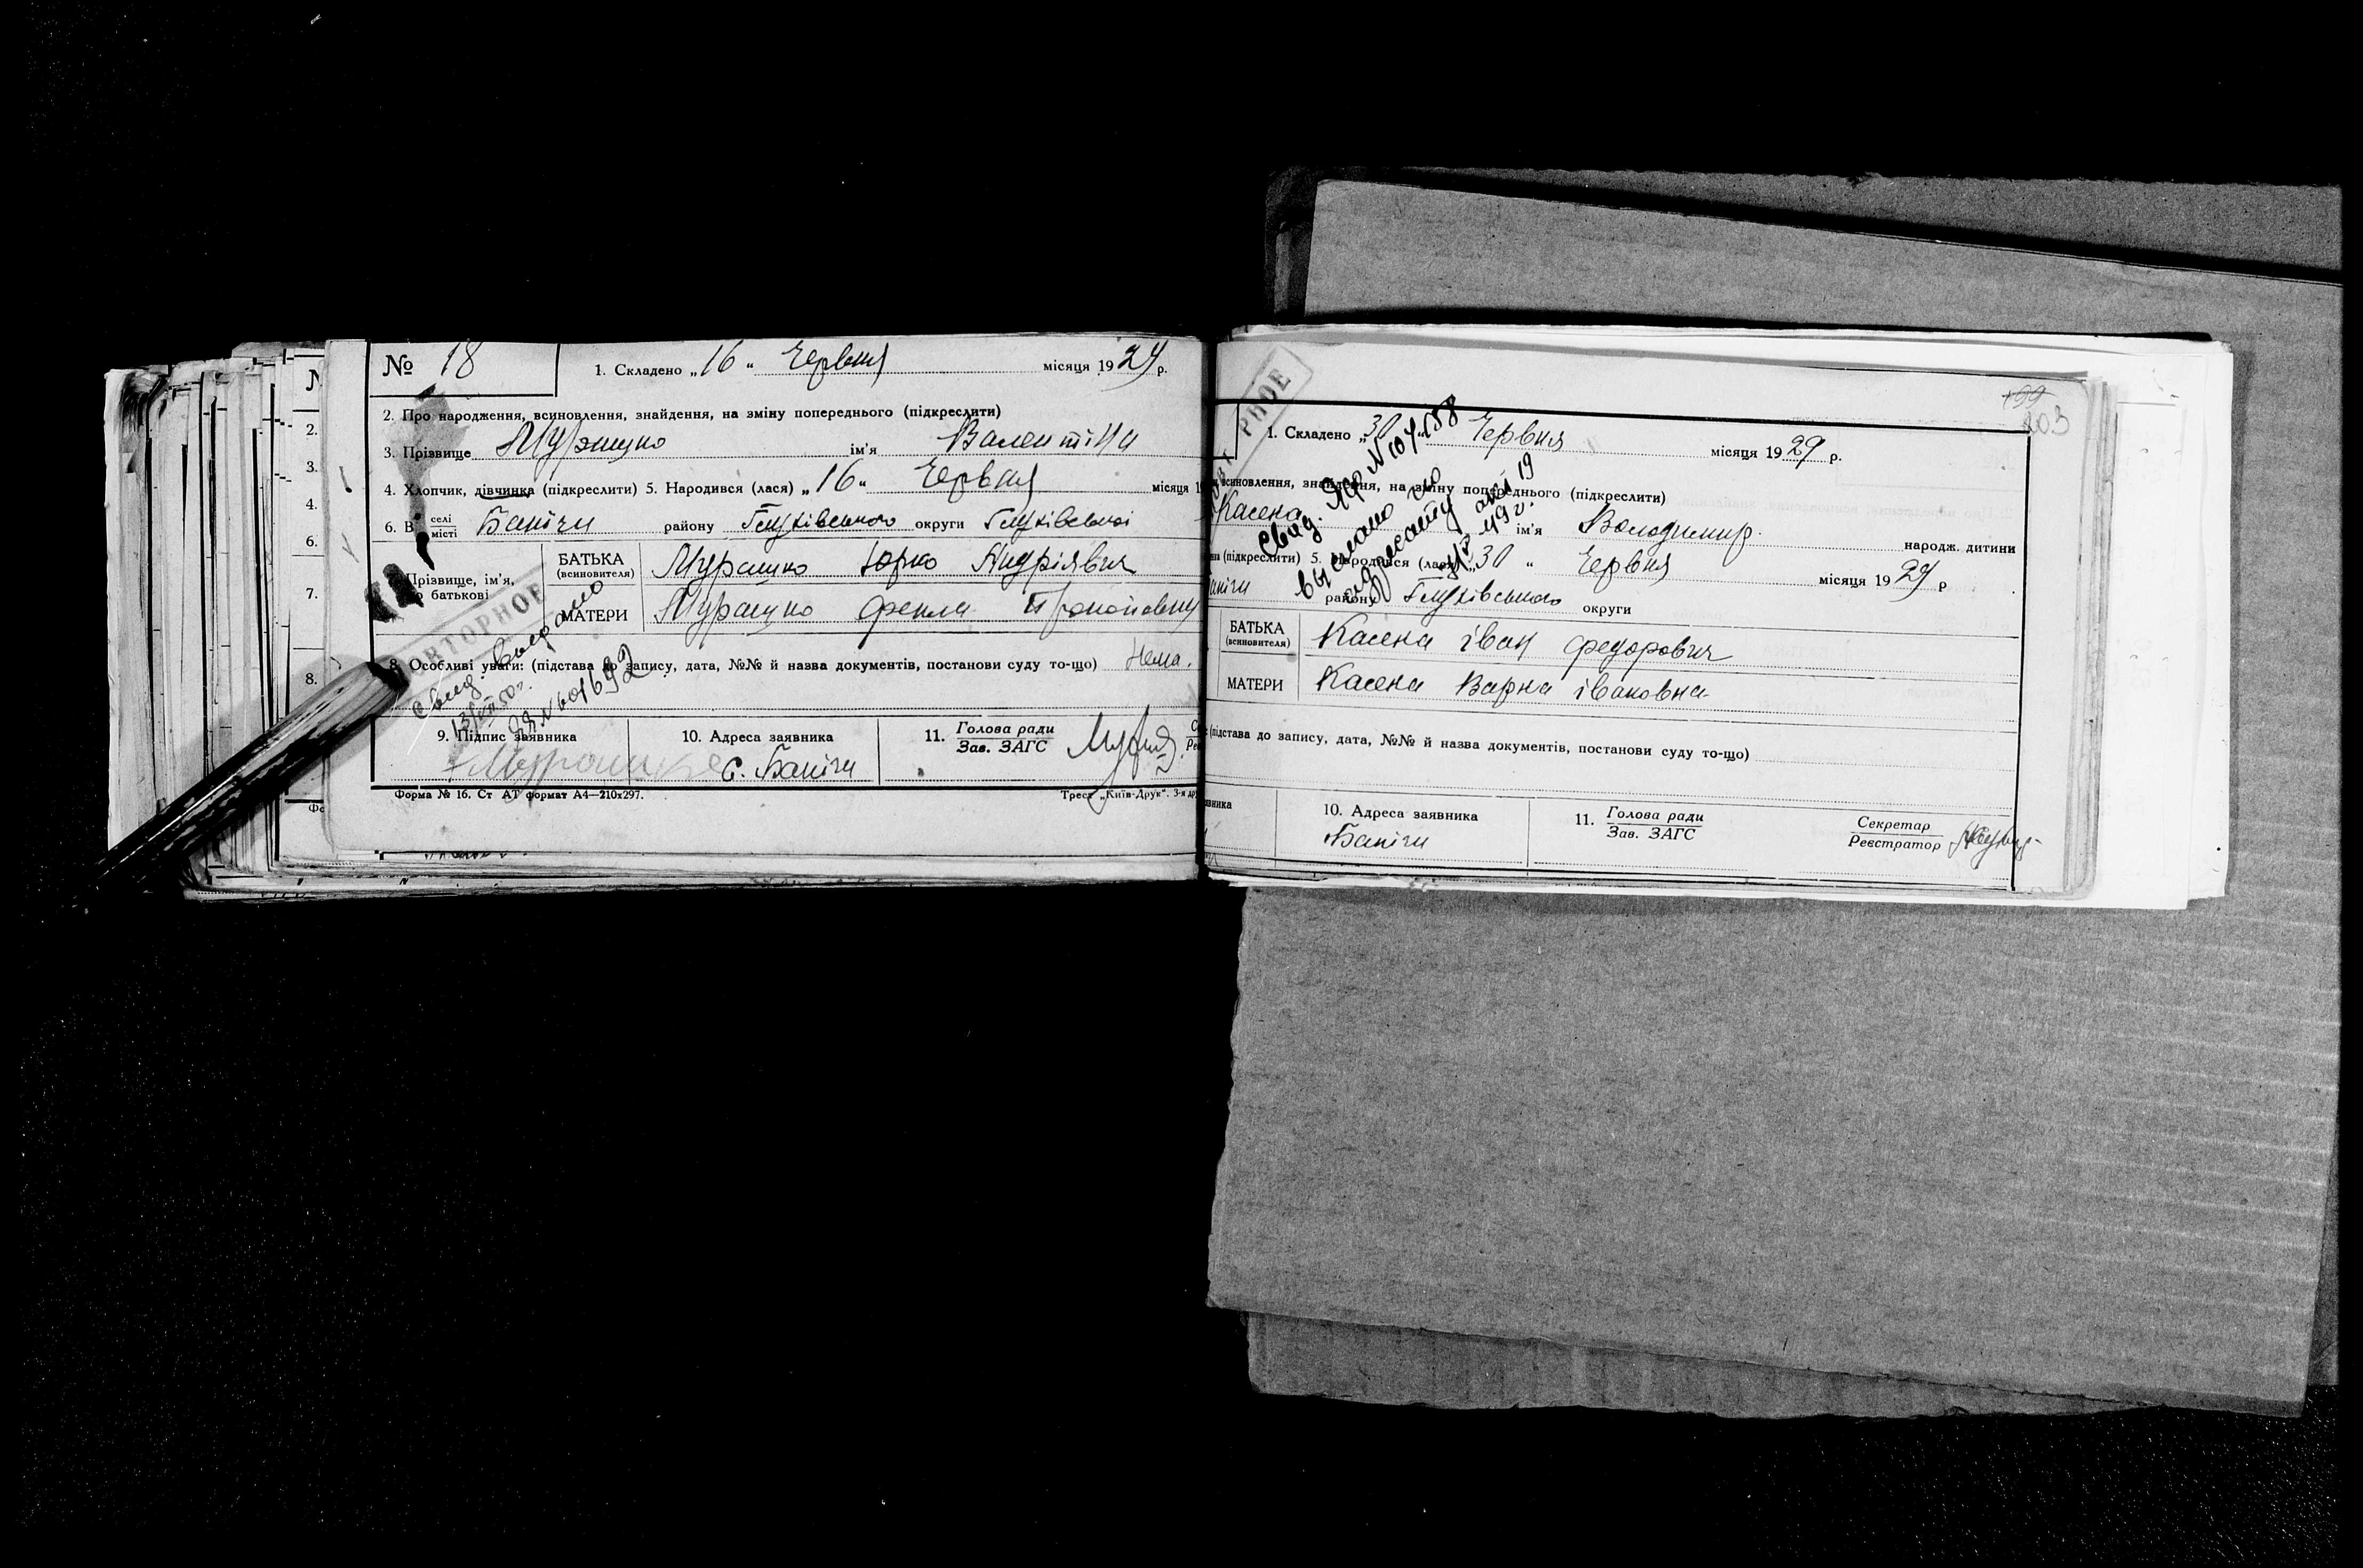 № 18
1. Складено „16“ Червня місяця 1929 р.
2. Про народження, всиновлення, знайдення, на зміну попереднього (підкреслити)
3. Прізвище Мурашко ім'я Валентіна
4. Хлопчик, дівчинка (підкреслити) 5. Народився (лася) „16“ Червня місяця
6. В селі місті Банічи району Глухівського округи Глухівської
7. Прізвище, ім'я, по батькові
БАТЬКА (всиновителя) Мурашко Юрко Андріявич
МАТЕРИ Мурашко Фекла
ПОВТОРНОЕ
Свид. выдано
8. Особливі уваги: (підстава до запису, дата, №№ й назва документів, постанови суду то-що) Нема.
9. Підпис заявника
10. Адреса заявника
с. Банічи
11. Голова ради
Зав. ЗАГС
Форма № 16. Ст АТ формат А4—210х297.
Трест „Київ-Друк“.
203
РНОЕ
1. Складено „30“ Червня місяця 1929 р.
всиновлення, знайдення, на зміну попереднього (підкреслити)
Касена ім'я Володимир народж. дитини
(підкреслити) 5. Народився (лася) „30“ Червня місяця 1929 р
району Глухівського округи
БАТЬКА (всиновителя) Касена іван федорович
МАТЕРИ Касена Варка івановна
Свид. № 104188
выслано по
49 г.
(підстава до запису, дата, №№ й назва документів, постанови суду то-що)
10. Адреса заявника
Банічи
11. Голова ради
Зав. ЗАГС
Секретар
Реєстратор